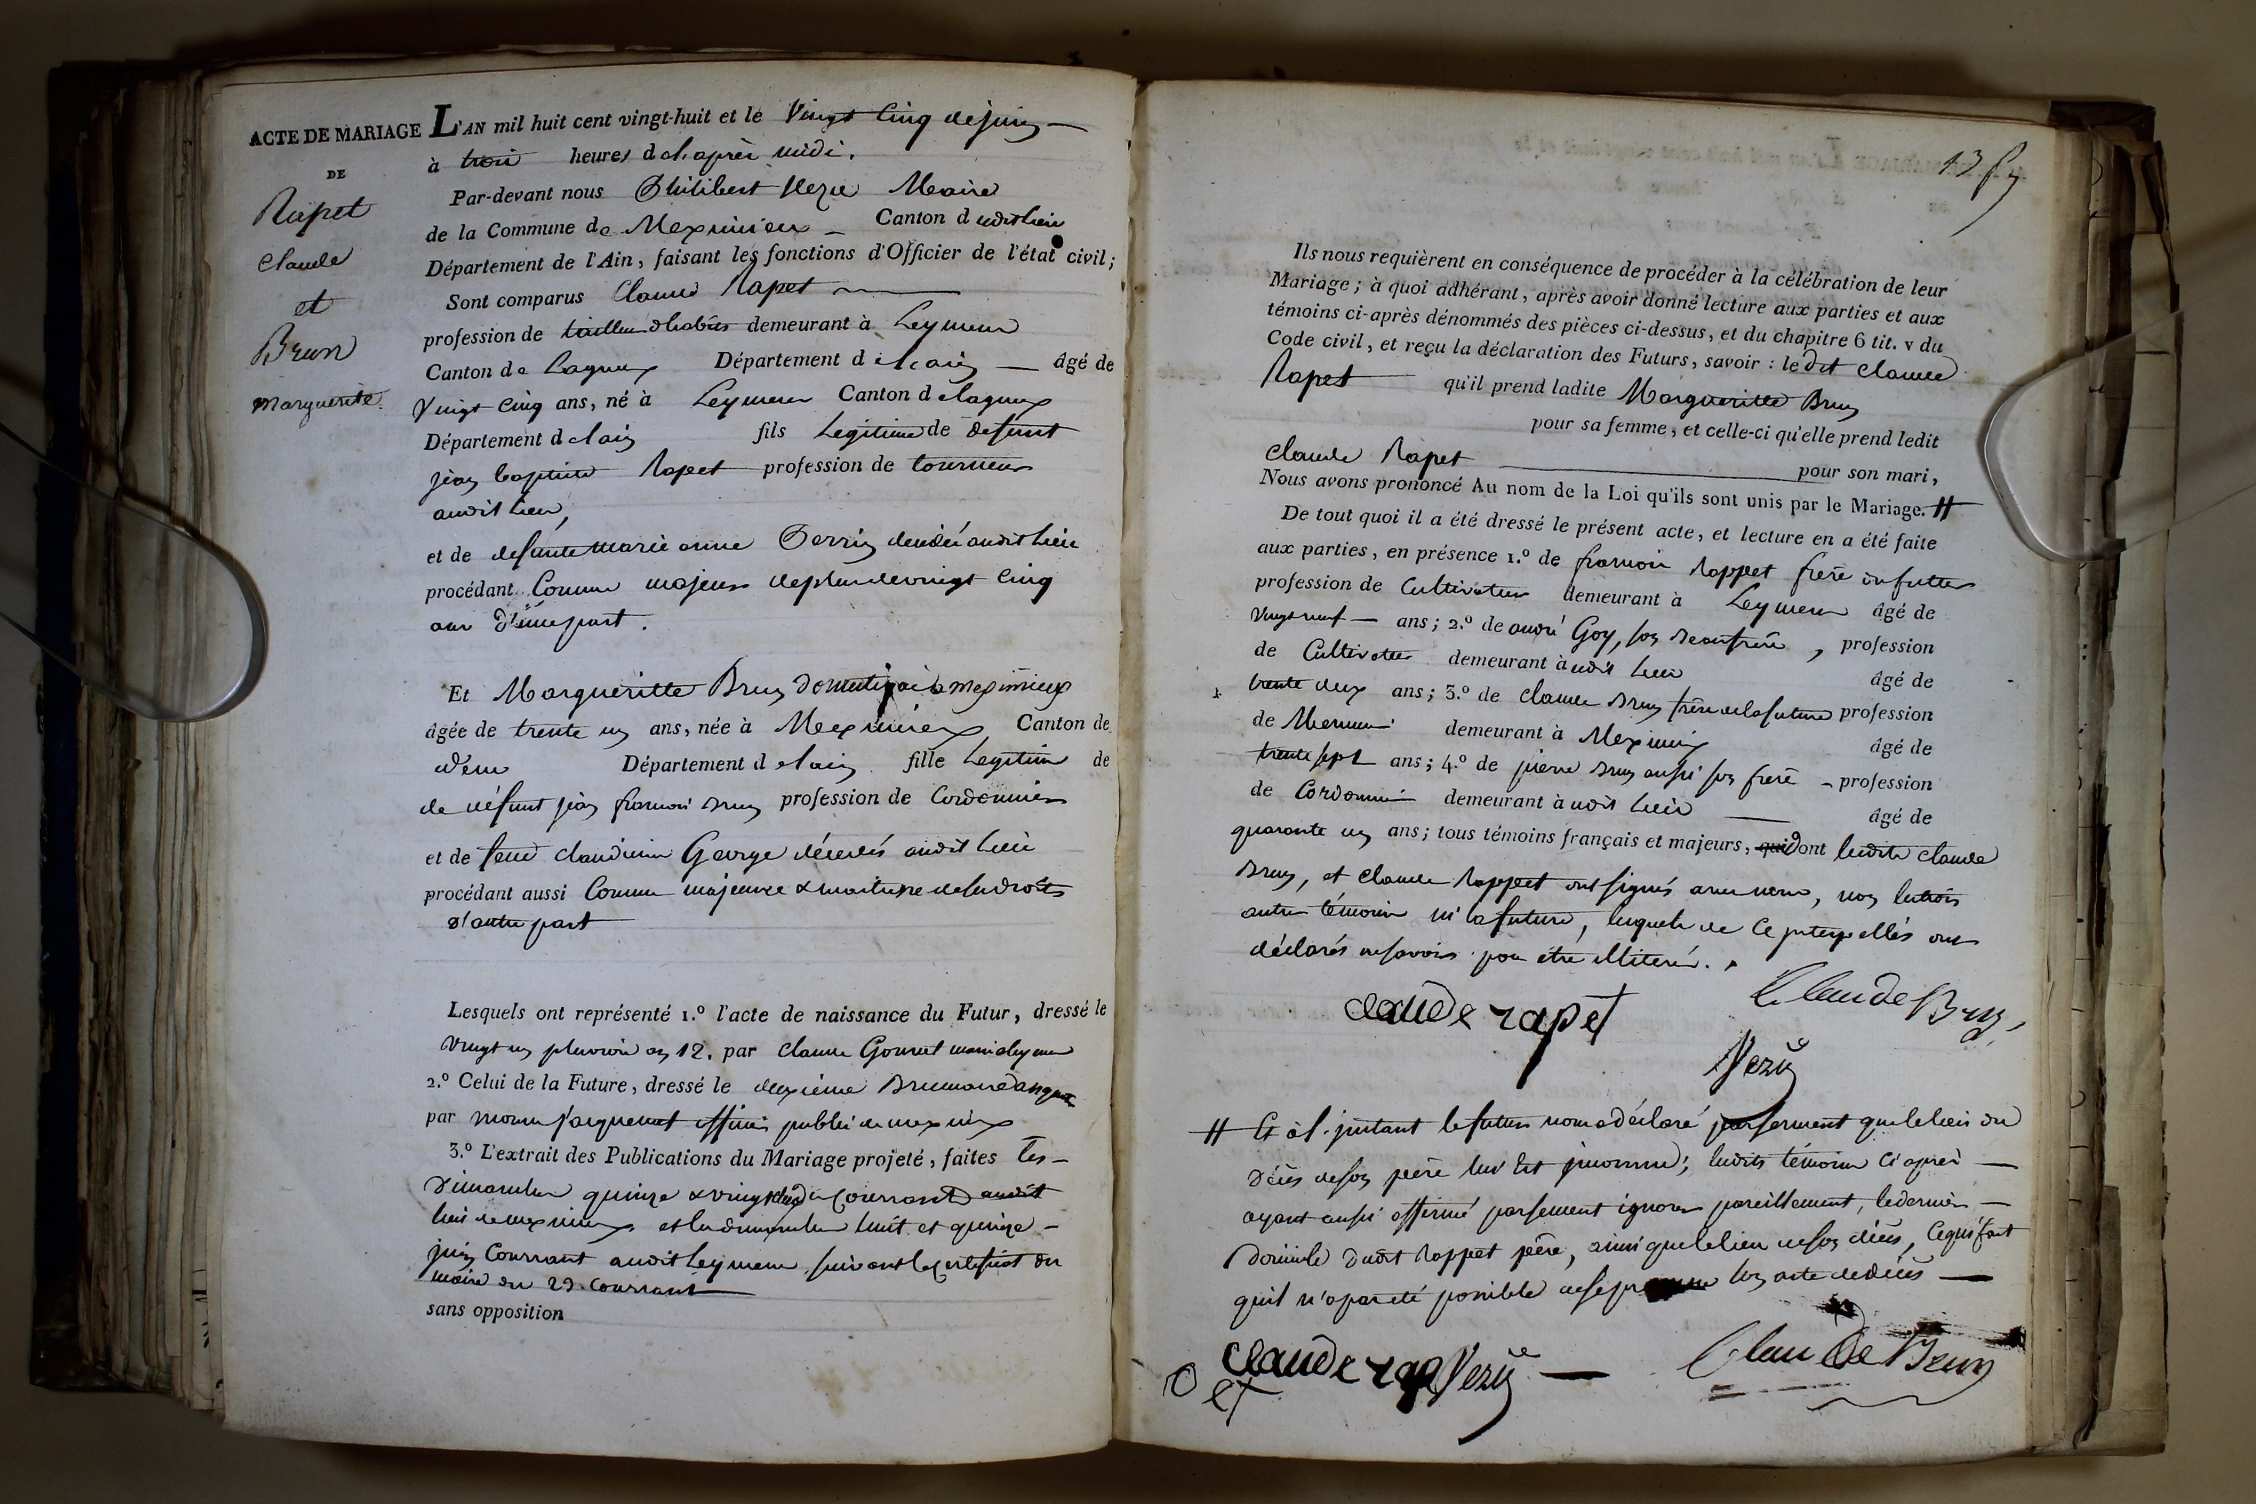 ACTE DE MARIAGE
DE
Rapet
Claude
et
Brun
Marguerite.
L'AN mil huit cent vingt-huit et le Vingt Cinq de juin
à trois heures de l'après midi.
Par-devant nous Philibert Vezu Maire
de la Commune de Meximieux Canton dudit lieu
Département de l'Ain, faisant les fonctions d'Officier de l'état civil;
Sont comparus Claude Rapet
profession de tailleur d'habits demeurant à Leyment
Canton de Lagnieu Département de l'ain âgé de
Vingt Cinq ans, né à Leyment Canton de lagnieu
Département de l'ain fils Légitime de défunt
jean baptiste Rapet profession de tourneur
audit lieu,
et de defunte marie anne Perrin décédée audit lieu
procédant Comme majeur de plus de vingt Cinq
ans d'une part.
Et Margueritte Brun domestique à meximieux
âgée de trente un ans, née à Meximieux Canton de
idem Département de l'ain fille Légitime de
de défunt jean françois Brun profession de Cordonnier
et de feue claudine George décédés audit lieu
procédant aussi Comme majeure & maitresse de ses droits
d'autre part
Lesquels ont représenté 1.º l'acte de naissance du Futur, dressé le
Vingt un pluviose an 12. par Claude maire de leyment
2.º Celui de la Future, dressé le deuxième Brumaire an
par officier public de meximieux
3.º L'extrait des Publications du Mariage projeté, faites les
dimanches quinze & vingt deux Courrant audit
lieu de meximieux et les dimanches huit et quinze
juin Courrant audit Leyment suivant le Certificat du
maire du 23. Courrant
sans opposition
13
Ils nous requièrent en conséquence de procéder à la célébration de leur
Mariage; à quoi adhérant, après avoir donné lecture aux parties et aux
témoins ci-après dénommés des pièces ci-dessus, et du chapitre 6 tit. v du
Code civil, et reçu la déclaration des Futurs, savoir : le dit Claude
Rapet qu'il prend ladite Margueritte Brun
pour sa femme, et celle-ci qu'elle prend ledit
Claude Rapet pour son mari,
Nous avons prononcé Au nom de la Loi qu'ils sont unis par le Mariage. //
De tout quoi il a été dressé le présent acte, et lecture en a été faite
aux parties, en présence 1.º de françois Rappet frère du futur
profession de Cultivateur demeurant à Leyment âgé de
Vingt neuf ans; 2.º de andré Goy, son Beaufrère, profession
de Cultivateur demeurant à udit lieu âgé de
trente deux ans; 3.º de Claude Brun frère de la future profession
de demeurant à Meximieux âgé de
trente sept ans; 4.º de pierre Brun aussi son frère profession
de Cordonnier demeurant à udit lieu âgé de
quarante un ans; tous témoins français et majeurs, qui dont lesdits Claude
Brun, et Claude Rappet ont signés avec nous, non les trois
autres témoins ni la future, lesquels de ce interpellés ont
déclarés ne savoir pour être illiterés.
claude rapet
Claude Brun
Vezu
// Et à l'instant le futur nous a déclaré par serment que le lieu du
décès de son père lui est inconnu; lesdits témoins Ci après
ayant aussi affirmé par serment ignorer pareillement, le dernier
domicile dudit Rappet père, ainsi que le lieu de son décès, Ce qui fait
qu'il n'a pas été possible de se son acte de décès
claude rap
et
Vezu
Claude Brun